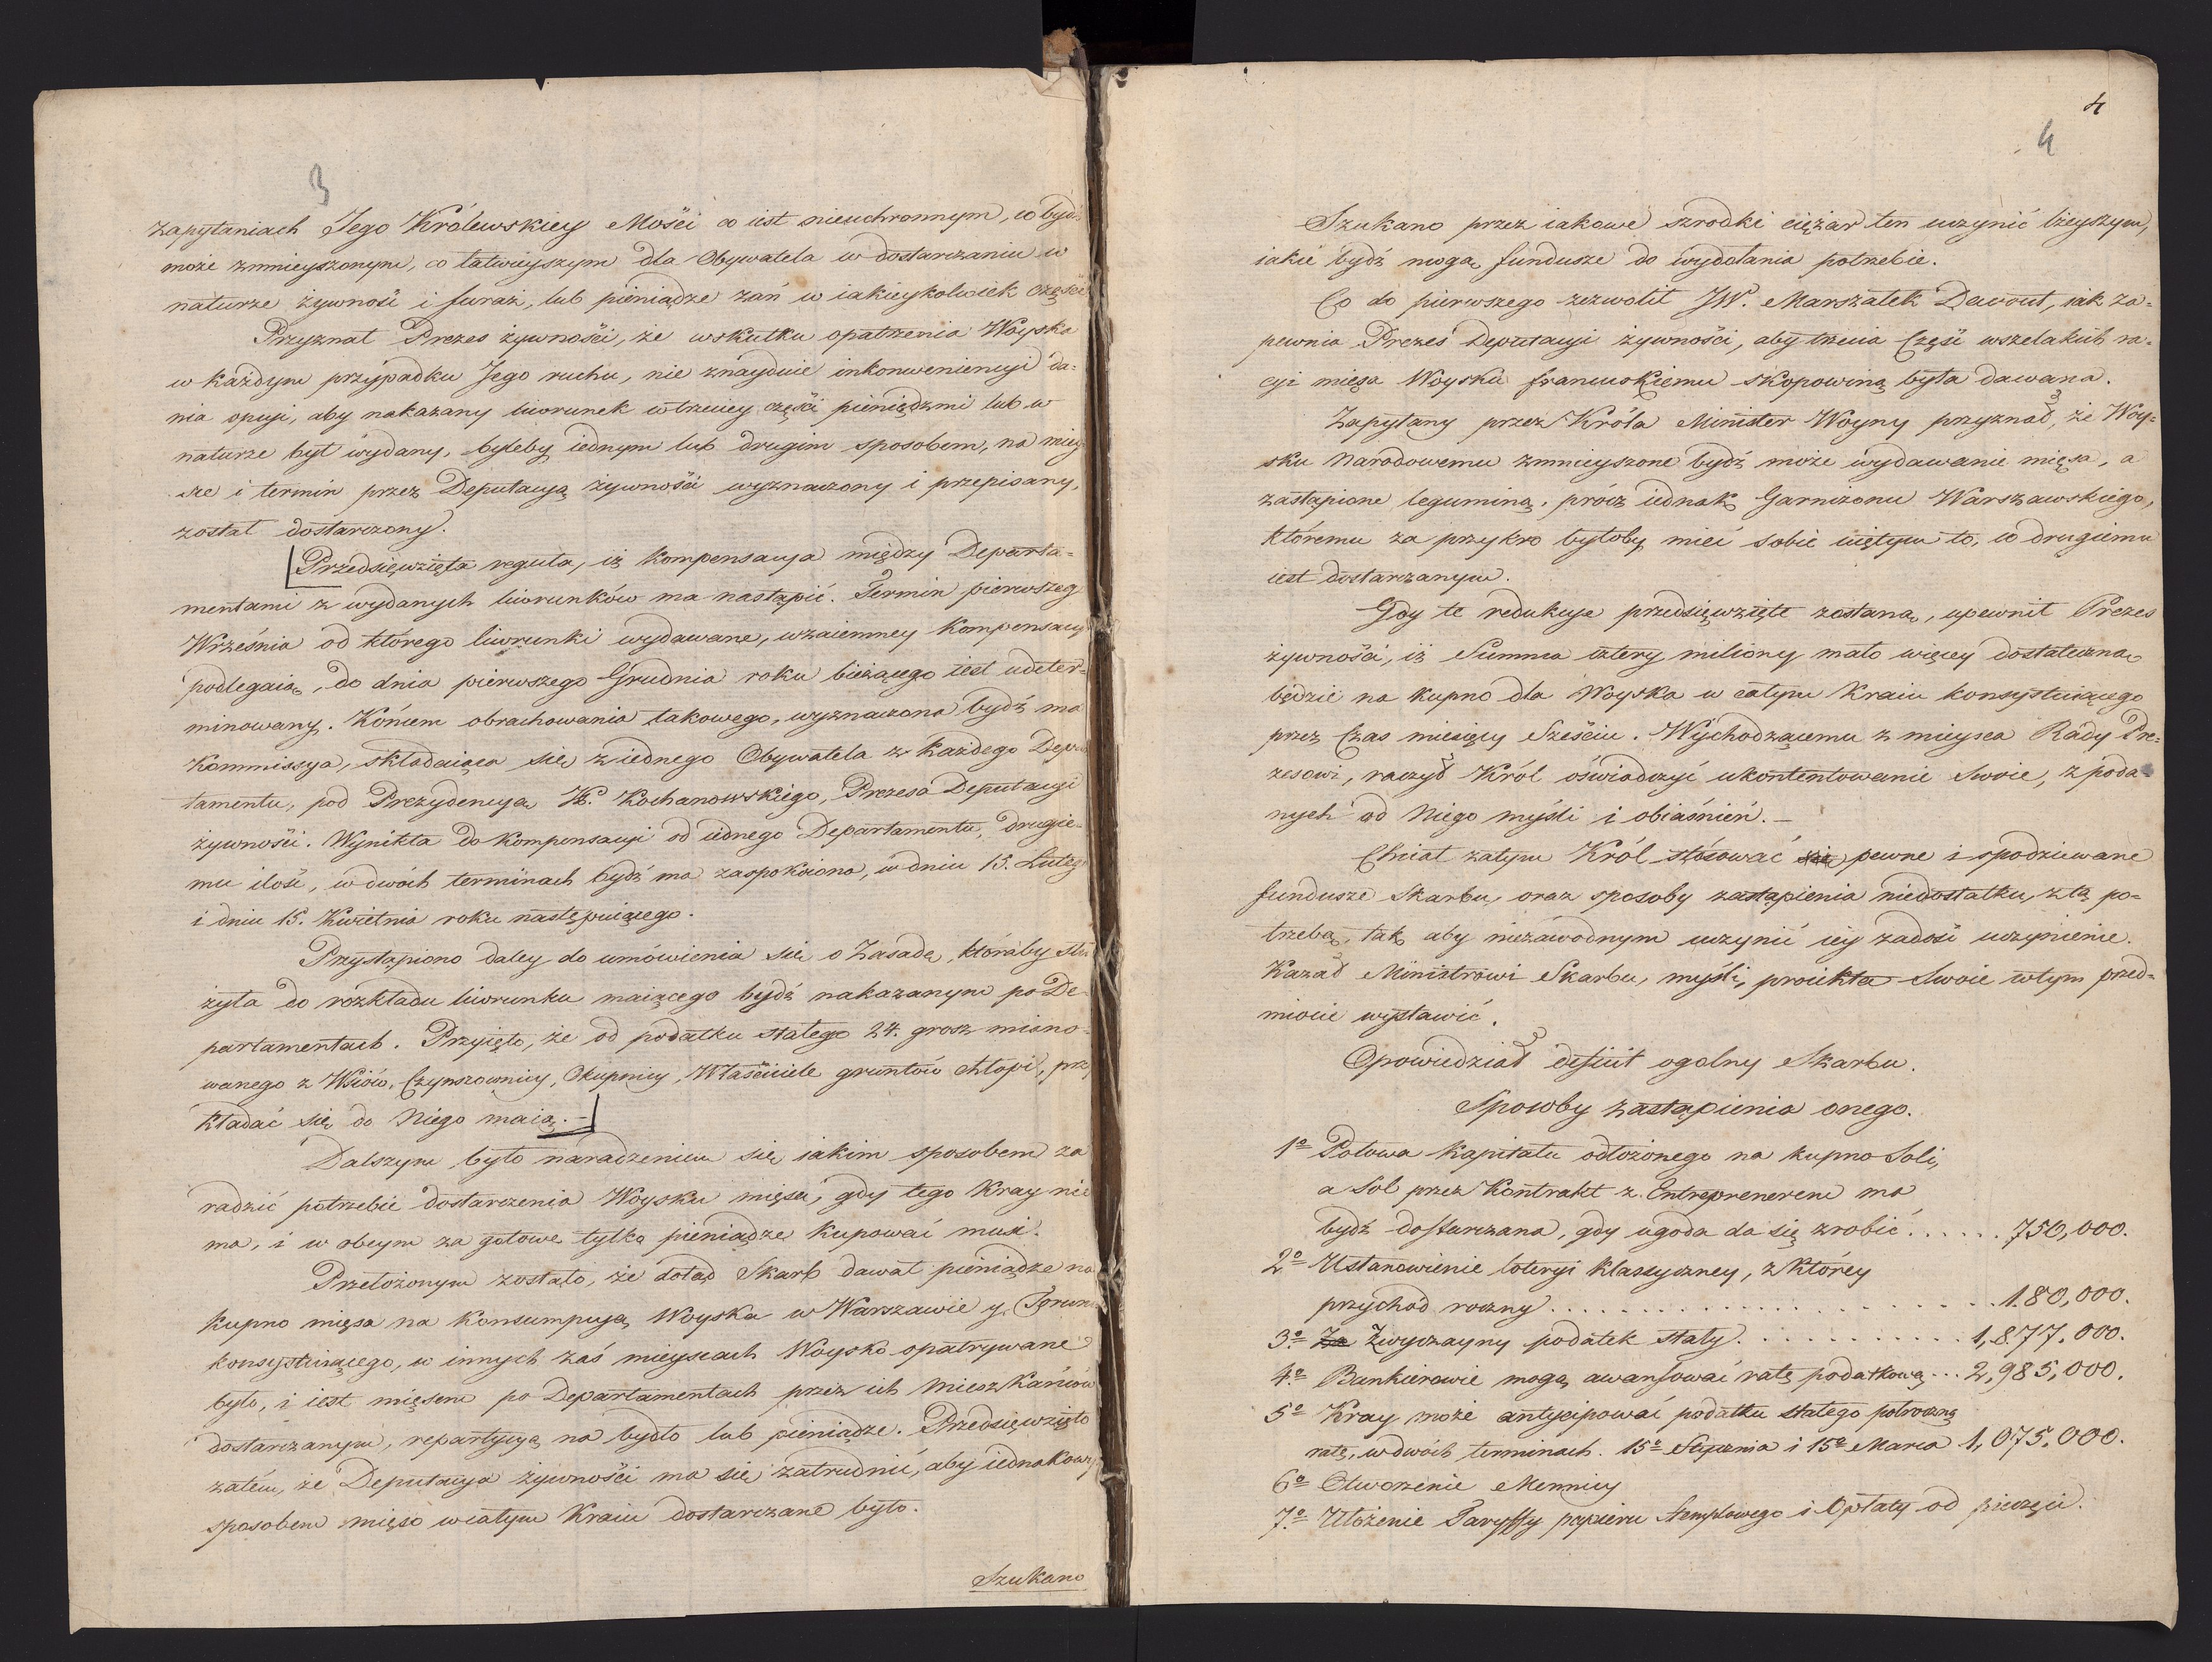 3
zapytaniach Jego Królewskiey Mości co iest nieuchronnym, co bydź
może zmnieyszonym, co łatwieyszym dla Obywatela w dostarczaniu w
naturze żywności i furaż, lub pieniądze zań w iakieykolwiek części
Przyznał Prezes żywności, że wskutku opatrzenia Woyska
w każdym przypadku Jego ruchu, nie znayduie inkonweniencyi da=
nia opcyi, aby nakazany liworunek wtrzeciey części pieniędzmi lub w
naturze był wydany, byleby iednym lub drugim sposobem, na miey
sce i termin przez Deputacyą żywności wyznaczony i przepisany,
został dostarczony.
Przedsięwzięta reguła, iż kompensacya między Departa=
mentami z wydanych liworunków ma nastąpić. Termin pierwszeg
Września od którego liworunki wydawane, wzaiemney kompensacy
podlegaią, do dnia pierwszego Grudnia roku bieżącego iest udeter=
minowany. Końcem obrachowania takowego, wyznaczona bydź ma
Kommissya, składaiąca się z iednego Obywatela z każdego Depar
tamentu, pod Prezydencyą W. Kochanowskiego, Prezesa Deputacyi
żywności. Wynikła do kompensacyi od iednego Departamentu, drugie=
mu ilość, w dwóch terminach bydź ma zaspokoiona, w dniu 15. Lutego
i dniu 15. Kwietnia roku następuiącego.
Przystąpiono daley do umówienia się o Zasadę, któraby słu
żyła do rozkładu liworunku maiącego bydź nakazanym po De=
partamentach. Przyięto, że od podatku stałego 24. grosz miano=
wanego z Wsiów, Czynszownicy, Okupnicy, Właściciele gruntów chłopi, przy
kładać się do Niego maią.
Dalszym było naradzeniem się iakim sposobem za
radzić potrzebie dostarczenia Woysku mięsa, gdy tego Kray nie
ma, i w obcym za gotowe tylko pieniądze kupować musi.
Przełożonym zostało, że dotąd Skarb dawał pieniądze na
kupno mięsa na konsumpcyą Woyska w Warszawie y Toruniu
konsystuiącego, w innych zaś mieyscach Woysko opatrywane
było, i iest mięsem po Departamentach przez ich Mieszkańców
dostarczanym, repartycyą na bydło lub pieniądze. Przedsięwzięto
zatém, że Deputacya żywności ma się zatrudnić, aby iednakowy
sposobem mięso wcałym Kraiu dostarczane było.
Szukano
4
4
Szukano przez iakowe szrodki ciężar ten uczynić lżeyszym,
iakie bydź mogą fundusze do wydołania potrzebie.
Co do pierwszego zezwolił JW. Marszałek Davout, iak za=
pewnia Prezes Deputacyi żywności, aby trzecia Część wszelakich ra=
cyi mięsa Woysku francuskiemu skopowiną była dawana.
Zapytany przez Króla Minister Woyny przyznał, że Woy=
sku Narodowemu zmnieyszone bydź może wydawanie mięsa, a
zastąpione leguminą, prócz iednak Garnizonu Warszawskiego,
któremu za przykro byłoby mieć sobie uiętym to, co drugiemu
iest dostarczanym.
Gdy te redukcye przedsięwzięte zostaną, upewnił Prezes
żywności, iż Summa cztery miliony mało więcey dostateczną
będzie na kupno dla Woyska w całym Kraiu konsystuiącego
przez Czas miesięcy Sześciu. Wychodzącemu z mieysca Rady Pre=
zesowi, raczył Król oświadczyć ukontentowanie Swoie, z poda
nych od Niego myśli i obiaśnień.
Chciał zatym Król stosować się pewne i spodziewane
fundusze Skarbu, oraz sposoby zastąpienia niedostatku, z tą po=
trzebą, tak aby niezawodnym uczynić iey zadość uczynienie.
Kazał Ministrowi Skarbu, myśli, proiekta Swoie wtym przed=
miocie wystawić.
Opowiedział deficit ogolny Skarbu.
Sposoby zastąpienia onego.
1º Połowa kapitału odłożonego na kupno Soli,
a Sol przez Kontrakt z Entreprenerem ma
bydź dostarczana, gdy ugoda da się zrobić ...... 750,000.
2º Ustanowienie loteryi klassyczney, z którey
przychód roczny ...................... 180,000.
3º Za Zwyczayny podatek stały ........... 1,877,000.
4º Bankierowie mogą awansować ratę podatkową ... 2,985,000.
5º Kray może antycipować podatku stałego półroczną
ratę, wdwóch terminach. 15º Stycznia i 15º Marca 1,075,000.
6º Otworzenie Mennicy
7º Ułożenie Taryffy papieru stemplowego i Opłaty od pieczęci.